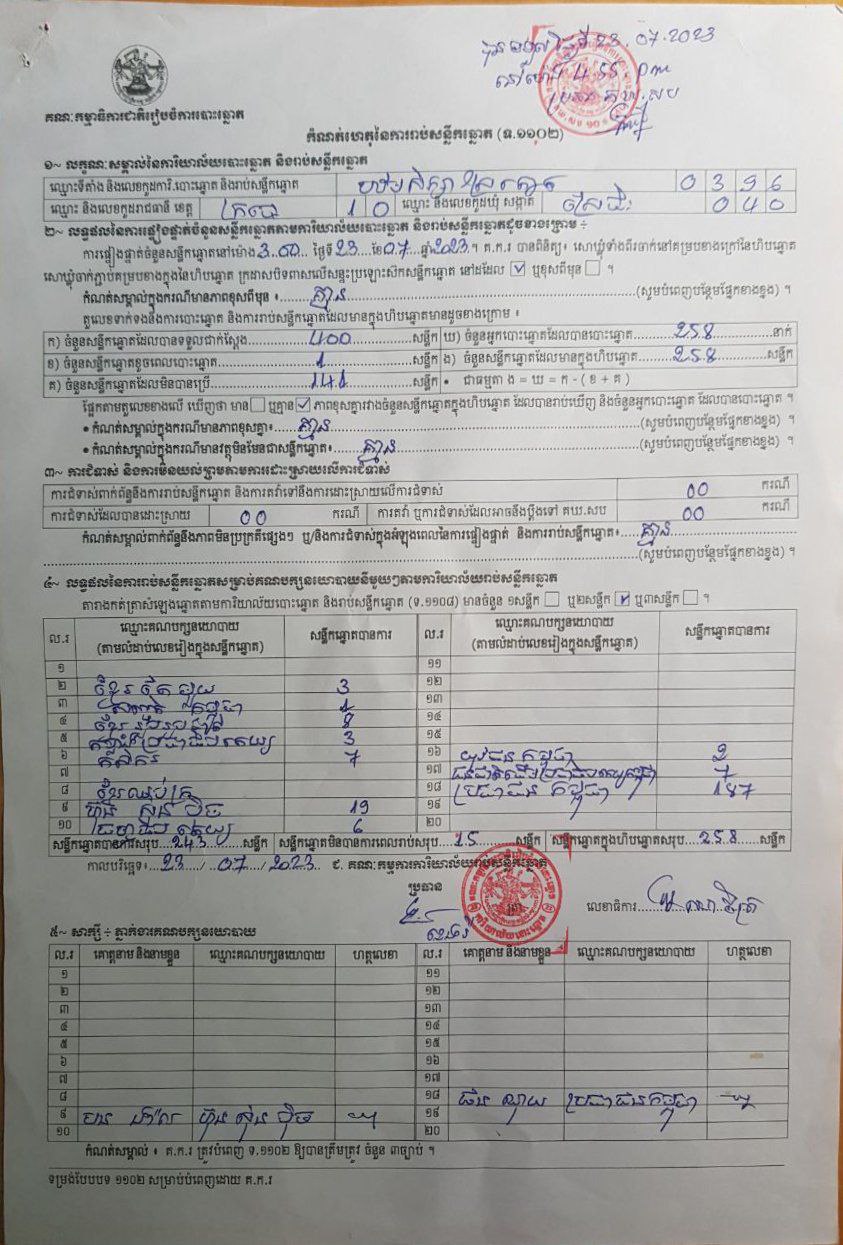 23.07.2023
4:55 pm
គណៈកម្មាធិការជាតិរៀបចំការបោះឆ្នោត
កំណត់ហេតុនៃការរាប់សន្លឹកឆ្នោត (ទ.១១០២)
១~ លក្ខណៈសម្គាល់នៃការិយាល័យបោះឆ្នោត និងរាប់សន្លឹកឆ្នោត
ឈ្មោះទីតាំង និងលេខកូដការិ.បោះឆ្នោត និងរាប់សន្លឹកឆ្នោត 0396
ឈ្មោះ និងលេខកូដរាជធានី ខេត្ត ក្រចេះ 10 ឈ្មោះ និងលេខកូដឃុំ សង្កាត់ 040
២~ លទ្ធផលនៃការផ្ទៀងផ្ទាត់ចំនួនសន្លឹកឆ្នោតតាមការិយាល័យបោះឆ្នោត និងរាប់សន្លឹកឆ្នោតដូចខាងក្រោម ÷
ការផ្ទៀងផ្ទាត់ចំនួនសន្លឹកឆ្នោតនៅម៉ោង 3:00 ថ្ងៃទី 23 ខែ 07 ឆ្នាំ 2023 ។ គ.ក.រ បានពិនិត្យ៖ សោឃ្លុំទាំងពីរចាក់នៅគម្របខាងក្រៅនៃហិបឆ្នោត
សោឃ្លុំចាក់ភ្ជាប់គម្របខាងក្នុងនៃហិបឆ្នោត ក្រដាសបិទពាសលើសន្ទះប្រឡោះសិកសន្លឹកឆ្នោត នៅដដែល ☑ ឬខុសពីមុន ☐ ។
កំណត់សម្គាល់ក្នុងករណីមានភាពខុសពីមុន ៖ គ្មាន (សូមបំពេញបន្ថែមផ្នែកខាងខ្នង) ។
តួលេខទាក់ទងនឹងការបោះឆ្នោត និងការរាប់សន្លឹកឆ្នោតដែលមានក្នុងហិបឆ្នោតមានដូចខាងក្រោម ៖
ក) ចំនួនសន្លឹកឆ្នោតដែលបានទទួលជាក់ស្តែង 400 សន្លឹក ឃ) ចំនួនអ្នកបោះឆ្នោតដែលបានបោះឆ្នោត 258 នាក់
ខ) ចំនួនសន្លឹកឆ្នោតខូចពេលបោះឆ្នោត 1 សន្លឹក ង) ចំនួនសន្លឹកឆ្នោតដែលមានក្នុងហិបឆ្នោត 258 សន្លឹក
គ) ចំនួនសន្លឹកឆ្នោតដែលមិនបានប្រើ 141 សន្លឹក • ជាធម្មតា ង = ឃ = ក - ( ខ + គ )
ផ្អែកតាមតួលេខខាងលើ ឃើញថា មាន ☐ ឬគ្មាន ☑ ភាពខុសគ្នារវាងចំនួនសន្លឹកឆ្នោតក្នុងហិបឆ្នោត ដែលបានរាប់ឃើញ និងចំនួនអ្នកបោះឆ្នោត ដែលបានបោះឆ្នោត ។
• កំណត់សម្គាល់ក្នុងករណីមានភាពខុសគ្នា៖ គ្មាន (សូមបំពេញបន្ថែមផ្នែកខាងខ្នង) ។
• កំណត់សម្គាល់ក្នុងករណីមានវត្ថុមិនមែនជាសន្លឹកឆ្នោត៖ គ្មាន (សូមបំពេញបន្ថែមផ្នែកខាងខ្នង) ។
៣~ ការជំទាស់ និងការមិនយល់ព្រមតាមការដោះស្រាយលើការជំទាស់
ការជំទាស់ពាក់ព័ន្ធនឹងការរាប់សន្លឹកឆ្នោត និងការតវ៉ាទៅនឹងការដោះស្រាយលើការជំទាស់ 00 ករណី
ការជំទាស់ដែលបានដោះស្រាយ 00 ករណី ការតវ៉ា ឬការជំទាស់ដែលអាចនឹងប្តឹងទៅ គឃ.សប 00 ករណី
កំណត់សម្គាល់ពាក់ព័ន្ធនឹងភាពមិនប្រក្រតីផ្សេងៗ ឬ/និងការជំទាស់ក្នុងអំឡុងពេលនៃការផ្ទៀងផ្ទាត់ និងការរាប់សន្លឹកឆ្នោត៖ គ្មាន
(សូមបំពេញបន្ថែមផ្នែកខាងខ្នង) ។
៤~ លទ្ធផលនៃការរាប់សន្លឹកឆ្នោតសម្រាប់គណបក្សនយោបាយនីមួយៗតាមការិយាល័យរាប់សន្លឹកឆ្នោត
តារាងកត់ត្រាសំឡេងឆ្នោតតាមការិយាល័យបោះឆ្នោត និងរាប់សន្លឹកឆ្នោត (ទ.១១០៨) មានចំនួន ១សន្លឹក ☐ ឬ២សន្លឹក ☑ ឬ៣សន្លឹក ☐ ។
ល.រ ឈ្មោះគណបក្សនយោបាយ (តាមលំដាប់លេខរៀងក្នុងសន្លឹកឆ្នោត) សន្លឹកឆ្នោតបានការ ល.រ ឈ្មោះគណបក្សនយោបាយ (តាមលំដាប់លេខរៀងក្នុងសន្លឹកឆ្នោត) សន្លឹកឆ្នោតបានការ
១ ១១
២ 3 ១២
៣ ១៣
៤ ១៤
៥ 3 ១៥
៦ កសិករ 7 ១៦ យុវជនកម្ពុជា 2
៧ ១៧ 7
៨ ១៨ ប្រជាជនកម្ពុជា 187
៩ ហ៊្វុនស៊ិនប៉ិច 19 ១៩
១០ 6 ២០
សន្លឹកឆ្នោតបានការសរុប 243 សន្លឹក សន្លឹកឆ្នោតមិនបានការពេលរាប់សរុប 15 សន្លឹក សន្លឹកឆ្នោតក្នុងហិបឆ្នោតសរុប 258 សន្លឹក
កាលបរិច្ឆេទ៖ 23 / 07 / 2023 ជ. គណៈកម្មការការិយាល័យរាប់សន្លឹកឆ្នោត
ប្រធាន
លេខាធិការ
៥~ សាក្សី ÷ ភ្នាក់ងារគណបក្សនយោបាយ
ល.រ គោត្តនាម និងនាមខ្លួន ឈ្មោះគណបក្សនយោបាយ ហត្ថលេខា ល.រ គោត្តនាម និងនាមខ្លួន ឈ្មោះគណបក្សនយោបាយ ហត្ថលេខា
១ ១១
២ ១២
៣ ១៣
៤ ១៤
៥ ១៥
៦ ១៦
៧ ១៧
៨ ១៨ ប្រជាជនកម្ពុជា
៩ ហ៊្វុនស៊ិនប៉ិច ១៩
១០ ២០
កំណត់សម្គាល់ ៖ គ.ក.រ ត្រូវបំពេញ ទ.១១០២ ឱ្យបានត្រឹមត្រូវ ចំនួន ៣ច្បាប់ ។
ទម្រង់បែបបទ ១១០២ សម្រាប់បំពេញដោយ គ.ក.រ